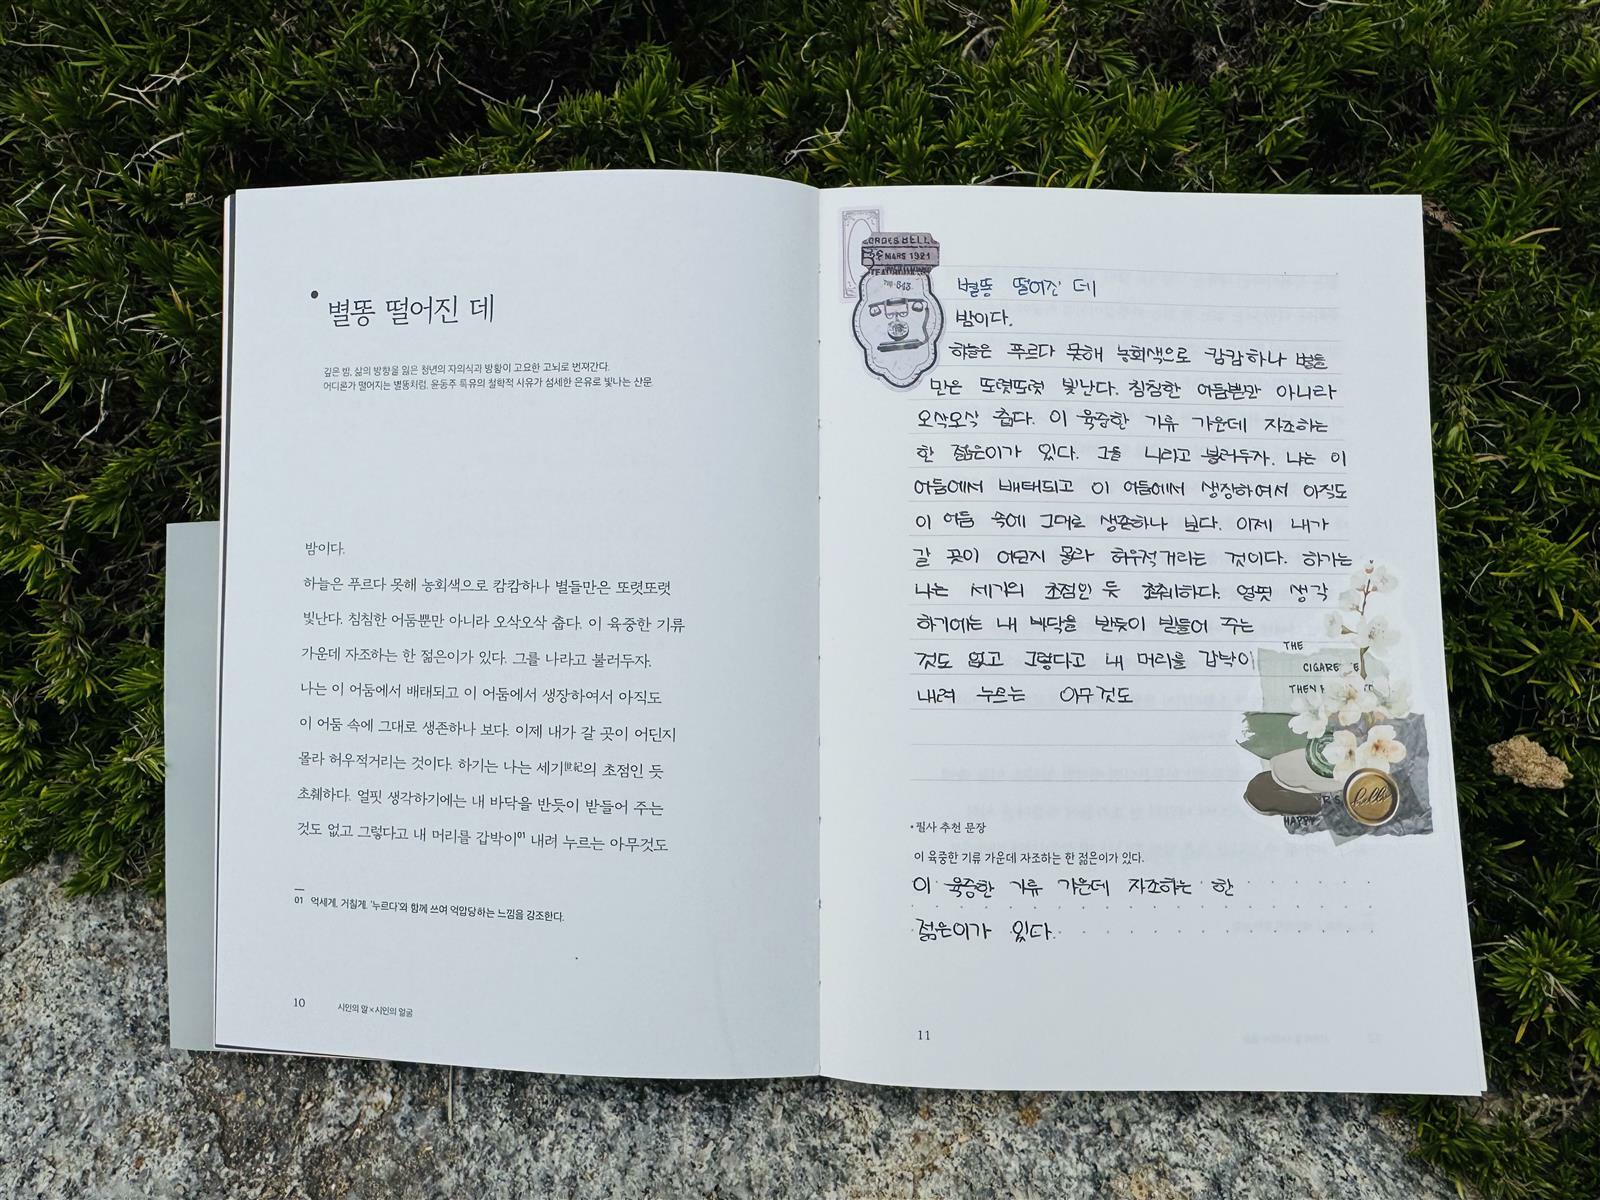 별똥 떨어진 데
깊은 밤, 삶의 방향을 잃은 청년의 자의식과 방황이 고요한 고뇌로 번져간다.
어디론가 떨어지는 별똥처럼, 윤동주 특유의 철학적 사유가 섬세한 은유로 빛나는 산문
밤이다.
하늘은 푸르다 못해 농회색으로 캄캄하나 별들만은 또렷또렷
빛난다. 침침한 어둠뿐만 아니라 오삭오삭 춥다. 이 육중한 기류
가운데 자조하는 한 젊은이가 있다. 그를 나라고 불러두자.
나는 이 어둠에서 배태되고 이 어둠에서 생장하여서 아직도
이 어둠 속에 그대로 생존하나 보다. 이제 내가 갈 곳이 어딘지
몰라 허우적거리는 것이다. 하기는 나는 세기世紀의 초점인 듯
초췌하다. 얼핏 생각하기에는 내 바닥을 반듯이 받들어 주는
것도 없고 그렇다고 내 머리를 갑박이01 내려 누르는 아무것도
01 억세게, 거칠게. '누르다'와 함께 쓰여 억압당하는 느낌을 강조한다.
10 시인의 말×시인의 얼굴
MARS 1921
별똥 떨어진 데
밤이다.
하늘은 푸르다 못해 농회색으로 캄캄하나 별들
만은 또렷또렷 빛난다. 침침한 어둠뿐만 아니라
오삭오삭 춥다. 이 육중한 기류 가운데 자조하는
한 젊은이가 있다. 그를 나라고 불러두자. 나는 이
어둠에서 배태되고 이 어둠에서 생장하여서 아직도
이 어둠 속에 그대로 생존하나 보다. 이제 내가
갈 곳이 어딘지 몰라 허우적거리는 것이다. 하기는
나는 세기의 초점인 듯 초췌하다. 얼핏 생각
하기에는 내 바닥을 반듯이 받들어 주는
것도 없고 그렇다고 내 머리를 갑박이
내려 누르는 아무것도
THE
THEN
HAPPY
hello
•필사 추천 문장
이 육중한 기류 가운데 자조하는 한 젊은이가 있다.
이 육중한 기류 가운데 자조하는 한
젊은이가 있다.
11